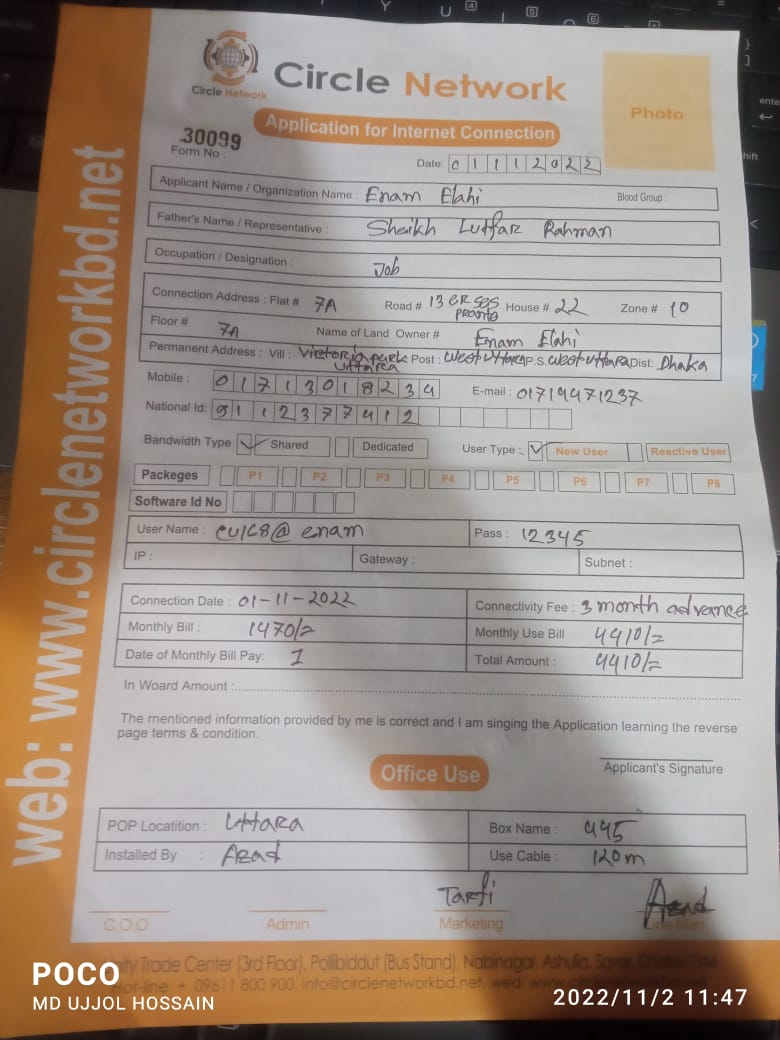 Circle Network
Circle Network
Photo
Application for Internet Connection
30099
Form No :
Date: 01112022
Applicant Name / Organization Name : Enam Elahi Blood Group :
Father's Name / Representative : Sheikh Lutfar Rahman
Occupation / Designation : Job
Connection Address : Flat # 7A Road # 13 House # 22 Zone # 10
Floor # 7A Name of Land Owner # Enam Elahi
Permanent Address : Vill : Victoria park Uttara Post : West Uttara P.S. West Uttara Dist: Dhaka
Mobile : 01713018234 E-mail : 01714471237
National Id: 9112377412
Bandwidth Type Shared Dedicated User Type : New User Reactive User
Packeges P1 P2 P3 P4 P5 P6 P7 P8
Software Id No
User Name : @ enam Pass : 12345
IP : Gateway : Subnet :
Connection Date : 01-11-2022 Connectivity Fee : 3 month advance
Monthly Bill : 1470/= Monthly Use Bill 4410/=
Date of Monthly Bill Pay: 1 Total Amount : 4410/=
In Woard Amount :
The mentioned information provided by me is correct and I am singing the Application learning the reverse
page terms & condition.
Applicant's Signature
Office Use
POP Locatition : Uttara Box Name : 445
Installed By : Azad Use Cable : 120m
Azad
C.O.O Admin Marketing Line Man
Trade Center (3rd Floor), Pollibiddut (Bus Stand), Nabinagar, Ashulia, Savar, Dhaka-1344
Hot-line: + 09611 800 900, info@circlenetworkbd.net, wed: www.
web: www.circlenetworkbd.net
POCO
MD UJJOL HOSSAIN
2022/11/2 11:47